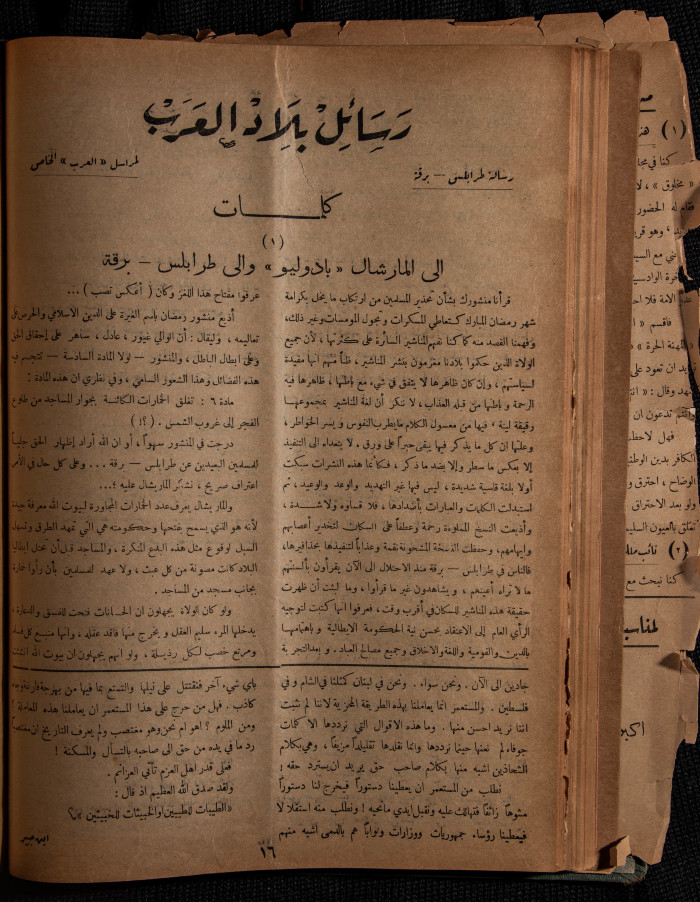 رسائل بلاد العرب
رسالة طرابلس — برقة
لمراسل « العرب » الخاص
كلمات
(١)
الى المارشال « بادوليو » والى طرابلس — برقة
قرأنا منشورك بشأن تحذير المسلمين من ارتكاب ما يخل بكرامة
شهر رمضان المبارك كتعاطي المسكرات وتجول المومسات وغير ذلك،
وفهمنا القصد منه كما كنا نفهم المناشير السائرة على كثرتها، لأن جميع
الولاة الذين حكموا بلادنا مغرمون بنشر المناشير، ظناً منهم انها مفيدة
لسياستهم، وإن كان ظاهرها لا يتفق في شيء مع باطنها، ظاهرها فيه
الرحمة وباطنها من قبله العذاب، لا ننكر أن لغة المناشير بمجموعها
رقيقة لينة، فيها من معسول الكلام ما يطرب النفوس ويسر الخواطر،
وعلمنا ان كل ما يذكر فيها يبقى حبراً على ورق، لا يتعداه الى التنفيذ
إلا بعكس ما سطر وإلا بضد ما ذكر، فكأنما هذه النشرات سبكت
أولا بلغة قاسية شديدة، ليس فيها غير التهديد والوعد والوعيد، ثم
استبدلت الكلمات والعبارات بأضدادها، فلا قساوه ولا شدة،
وأذيعت النسخ المملوءة رحمة وعطفاً على السكان لتخدير أعصابهم
وايهامهم، وحفظت النسخة المشحونة نقمة وعذاباً لتنفيذها بحذافيرها،
فالناس في طرابلس — برقة منذ الاحتلال الى الآن يقرأون بألسنتهم
ما لا تراه أعينهم، ويشاهدون غير ما قرأوا، وما لبثت أن ظهرت
حقيقة هذه المناشير للسكان في أقرب وقت، فعرفوا انها كتبت لتوجيه
الرأي العام إلى الاعتقاد بحسن نية الحكومة الايطالية وباهتمامها
بالدين والقومية واللغة والاخلاق وجميع مصالح العباد، وبعد التجربة
عرفوا مفتاح هذا اللغز وكان (أعكس تصب) ...
أذيع منشور رمضان باسم الغيرة على الدين الاسلامي والحرص على
تعاليمه، وليقال: أن الوالي غيور، عادل، ساهر على إحقاق الحق
وعلى ابطال الباطل، والمنشور — لولا المادة السادسة — تتجسم فيه
هذه الفضائل وهذا الشعور السامي، وفي نظري ان هذه المادة:
مادة ٦: تغلق الخمارات الكائنة بجوار المساجد من طلوع
الفجر إلى غروب الشمس. (؟!)
درجت في المنشور سهواً، أو ان الله أراد إظهار الحق جلياً
للمسلمين البعيدين عن طرابلس — برقة ... وعلى كل حال في الأمر
اعتراف صريح، نشكر الماريشال عليه؛...
والماريشال يعرف عدد الخمارات المجاورة لبيوت الله معرفة جيدة
لأنه هو الذي يسمح بفتحها وحكومته هي التي تمهد الطرق وتسهل
السبل لوقوع مثل هذه البدع المنكرة، والمساجد قبل أن تحتل ايطاليا
البلاد كانت مصونة من كل عبث، ولا عهد للمسلمين بأن رأوا خمارة
بجانب مسجد من المساجد.
ولو كان الولاة يجهلون ان الحانات فتحت للفسق والدعارة،
يدخلها المرء سليم العقل ويخرج منها فاقد عقله، وانها منبع كل فساد
ومرتع خصب لكل رذيلة، ولو انهم يجهلون ان بيوت الله انشئت
جادين الى الآن. ونحن سواء. ونحن في لبنان كمثلنا في الشام وفي
فلسطين. والمستعمر انما يعاملنا بهذه الطريقة المخزية لاننا لم نثبت
اننا نريد احسن منها. وما هذه الاقوال التي نرددها الا كلمات
جوفاء لم نعنها حينما نرددها وانما نقلدها تقليداً مزيفاً، وهي بكلام
الشحاذين اشبه منها بكلام صاحب حق يريد ان يسترد حقه!
نطلب من المستعمر ان يعطينا دستوراً فيخرج لنا دستوراً
مشوهاً زائفاً فنتهالك عليه ونقبل ايدي مانحيه! ونطلب منه استقلالاً
فيعطينا رؤساء جمهوريات ووزارات ونواباً هم بالدمى اشبه منهم
باي شيء آخر فنقتتل على نيلها والتمتع بما فيها من بهرجة فارغة وجاه
كاذب. فهل من حرج على هذا المستعمر ان يعاملنا هذه المعاملة؟
ومن الملوم؟ اهو ام نحن وهو مغتصب ولم يعرف التاريخ ان مغتصباً
رد ما في يده من حق الى صاحبه بالتسآل والمسكنة!
فعلى قدر اهل العزم تأتي العزائم.
ولقد صدق الله العظيم اذ قال:
«الطيبات للطيبين والخبيثات للخبيثين»؟
ابن جبير
١٦
(١)
(٢) نائب
كنا نبحث مع
لمناسبة